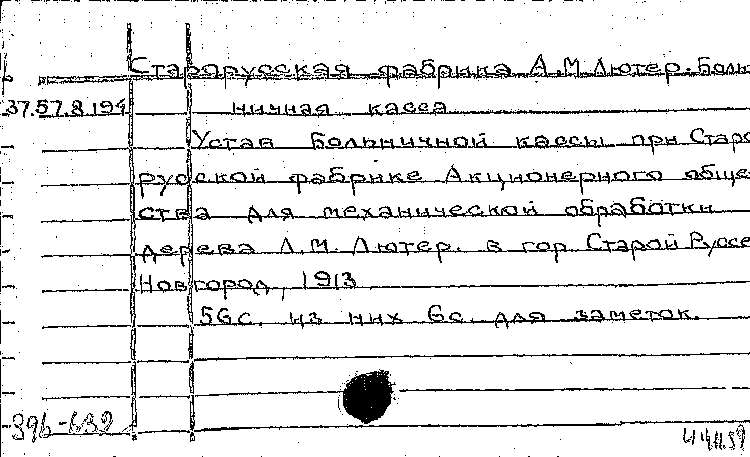 Старорусская фабрика А.М Лютер. Боль
37.57.8.194 ничная касса
Устав больничной кассы при Старо
русской фабрике Акционерного обще
ства для механической обработки
дерева А.М. Лютер. в гор Старой Руссе
Новгород, 1913
56с. из них 6с. для заметок.
396-639